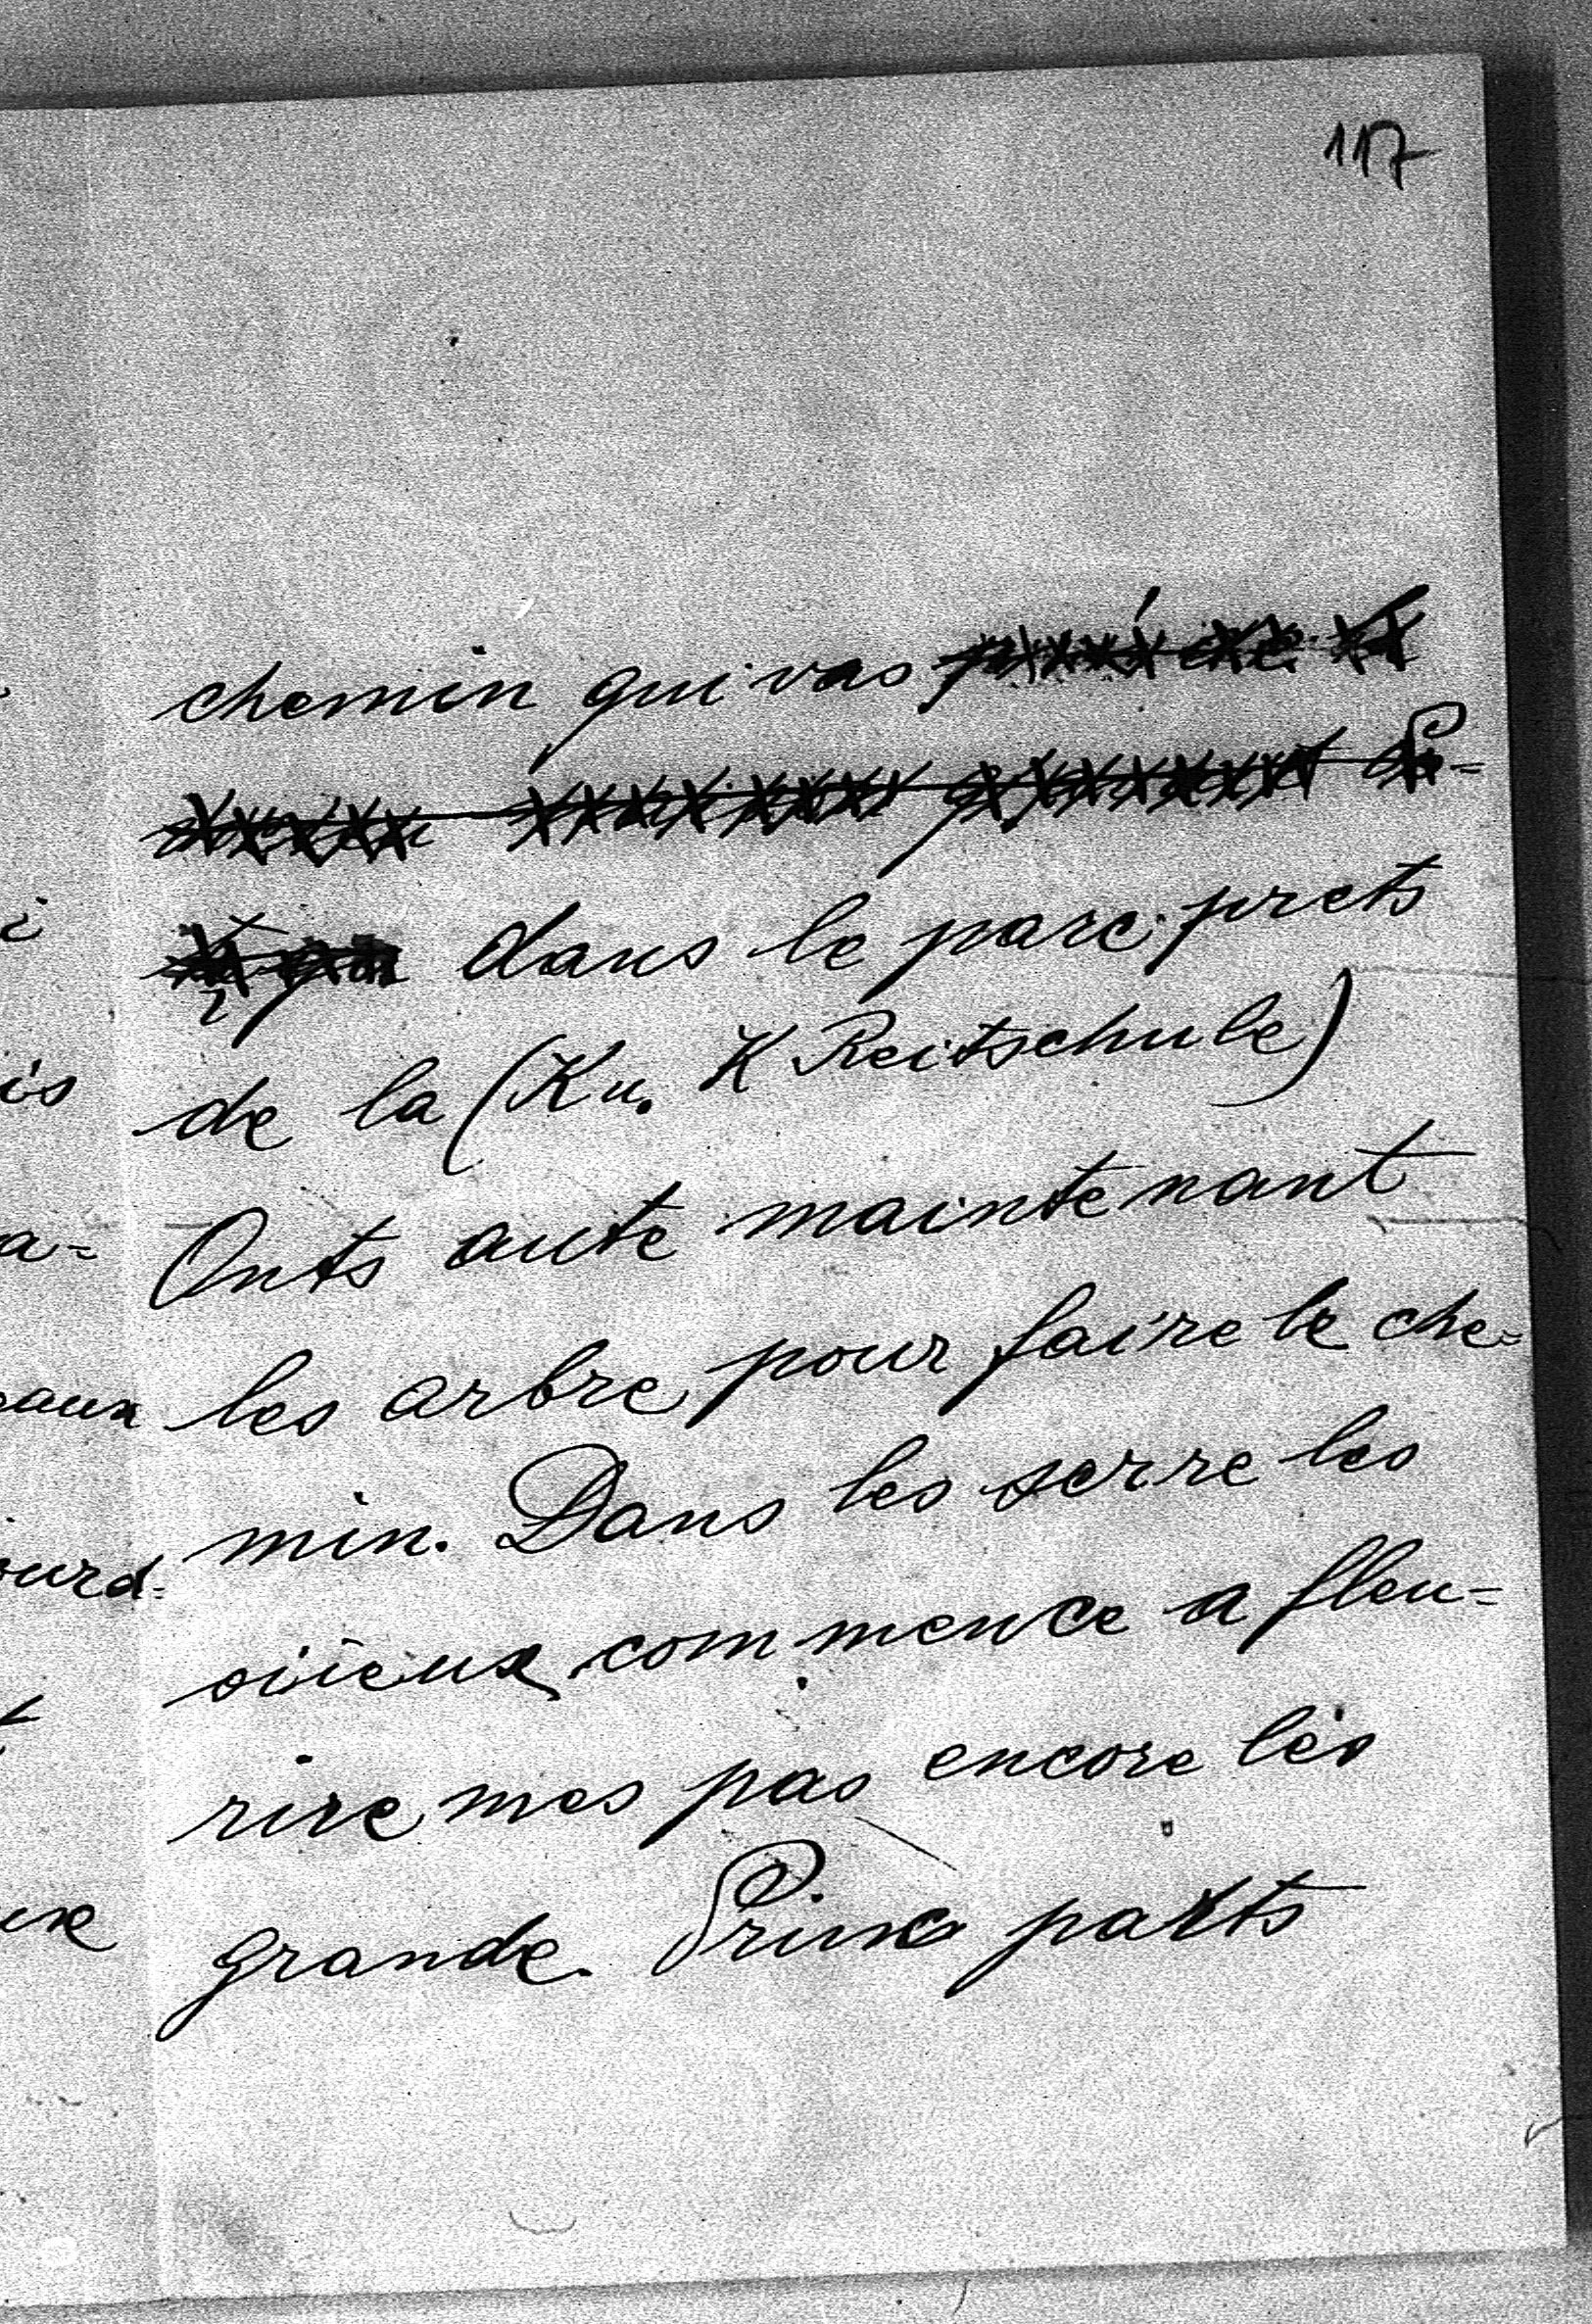 117
chemin qui vas
dans le parc prets
de la (K u. K Reitschule)
Onts aute maintenant
les arbre pour faire le che=
min. Dans les serre les
oiieux commence a fleu=
rire mes pas encore les
grande. Prince parts
i
is
a=
eaux
ourd=